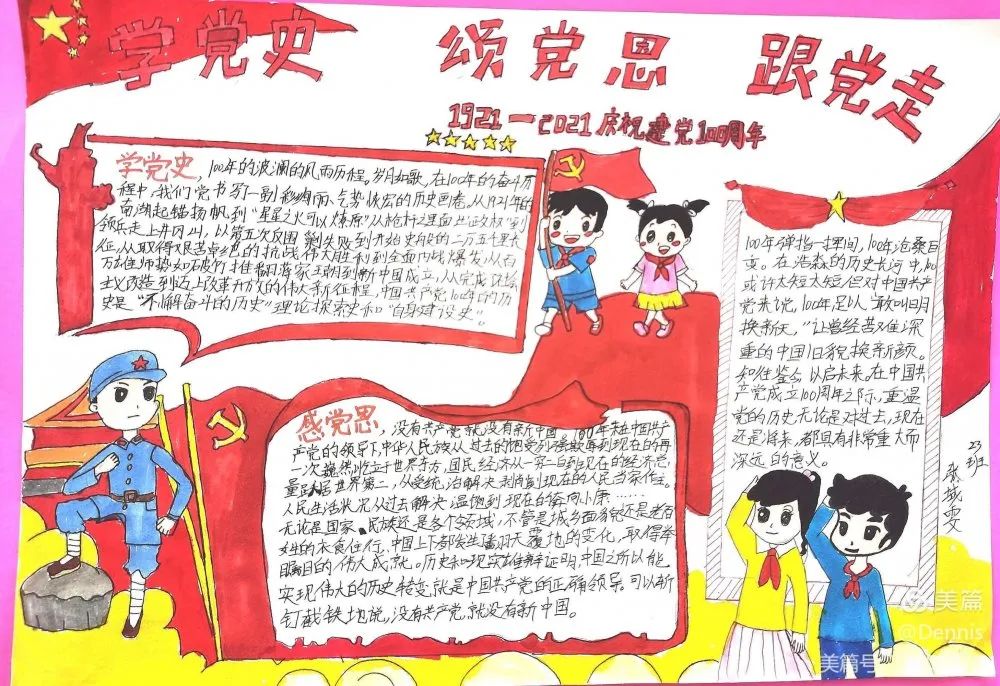 学党史 颂党恩 跟党走
1921—2021庆祝建党100周年
学党史，100年的波澜的风雨历程。岁月如歌，在100年的奋斗历
程中，我们党书写了一副彩绚丽、气势恢宏的历史画卷。从1921年的
南湖起锚扬帆到“星星之火可以燎原”从枪杆之里面出政权”到
领兵走上井冈山，以第五次反围剿失败到开始史般的二万五千里长
征，从取得艰苦卓绝的抗战伟大胜利到全面内战爆发，从百
万雄师势如破竹推翻蒋家王朝到新中国成立，从完成社会
主义改造到迈上改革开放的伟大新征程，中国共产党100年的历
史是“不懈奋斗的历史”理论探索史和“自身建设史”。
感党恩，没有共产党就没有新中国。1949年来在中国共产
产党的领导下，中华人民族从过去的饱受列强欺辱到现在的再
一次巍然屹立于世界东方，国民经济从一穷二白到现在的经济总
量跃居世界第二，从受统治解决剥削到现在的人民当家作主。
人民生活状况从过去解决温饱到现在的奔向小康……
无论是国家、民族还是各个领域，不管是城乡面貌还是老百
姓的衣食住行，中国上下都发生翻天覆地的变化，取得举
瞩目的伟大成就。历史和现实雄辩证明，中国之所以能
实现伟大的历史转变，就是中国共产党的正确领导。可以斩
钉截铁地说，没有共产党，就没有新中国。
100年弹指一挥间，100年沧桑巨
变。在浩淼的历史长河中，100
或许太短太短，但对中国共产
党来说，100年足以“敢叫日月
换新天，”让曾经苦难深
重的中国旧貌换新颜。
知往鉴今，以启未来。在中国共
产党成立100周年之际，重温
党的历史无论是对过去，现在
还是将来，都具有非常重大而
深远的意义。
23班
张城雯
美篇
@Dennis
美篇号